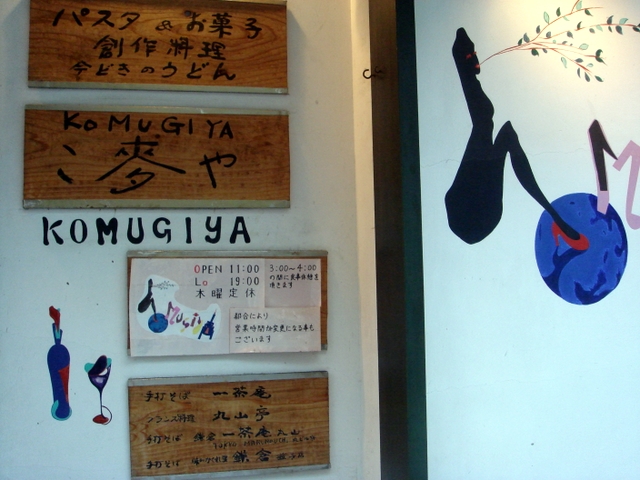 パスタ & お菓子
創作料理
今どきのうどん
KOMUGIYA
こ麦や
KOMUGIYA
OPEN 11:00
Lo 19:00
木曜定休
3:00〜4:00
の間に食事休憩を
頂きます
MUGIYA
都合により
営業時間が変更になる事も
ございます
手打そば 一茶庵
フランス料理 丸山亭
手打そば 鎌倉 一茶庵 丸山
手打そば 鎌倉